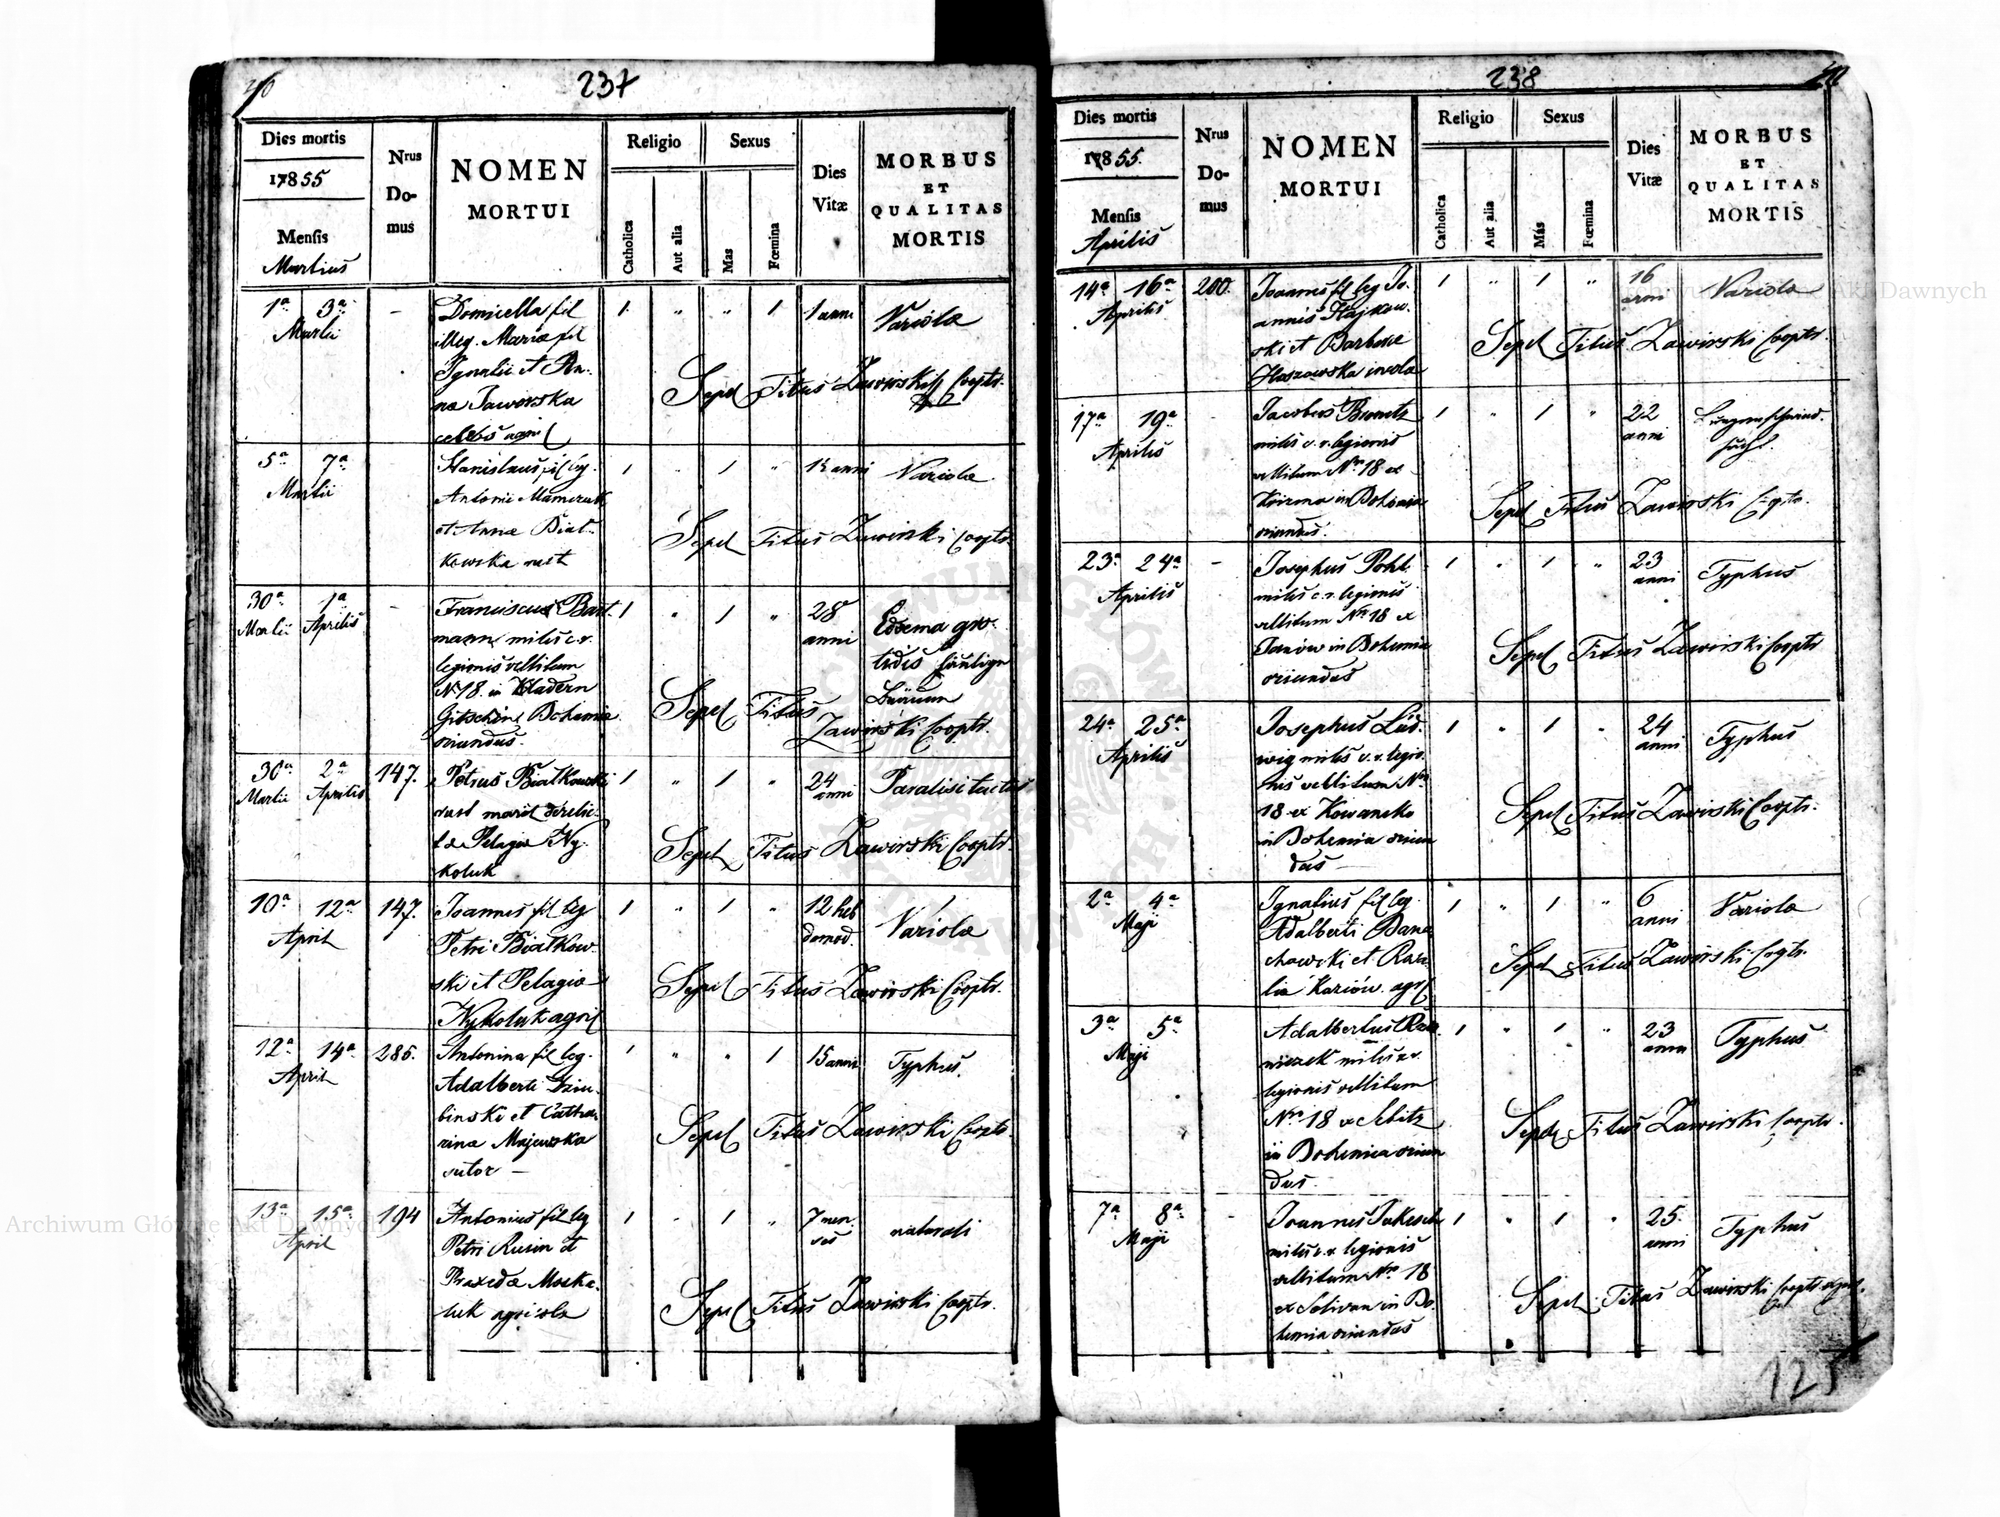 237
Dies mortis
1855
Mensis
Martius
Nrus
Do-
mus
NOMEN
MORTUI
Religio
Catholica
Aut alia
Sexus
Mas
Fœmina
Dies
Vitæ
MORBUS
ET
QUALITAS
MORTIS
1ª 3ª
Martii
-
Domicella fil
illeg. Mariæ fil
Ignatii et An-
næ Jaworska
1 " " 1
1 anni
Variola
Sepel Titus Zawirski Coopts.
5ª 7ª
Martii
Stanislaus fil leg.
Antonii
et Annæ Biał-
kowska rust
1 " 1 "
Variola
Sepel Titus Zawirski Coopts.
30ª 1ª
Martii Aprilis
-
Franciscus Bart-
mann miles c.r.
legionis vellitum
N 18. in Kladern
Gitschine Bohemia
oriundus.
1 " 1 "
28
anni
Sepel Titus
Zawirski Coopts.
30ª 2ª
Martii Aprilis
147.
Petrus Białkowski
rust marit derelic-
tæ Pelagia Ny-
koluk
1 " 1 "
24
anni
Paralisi tactus
Sepel Titus Zawirski Coopts.
10ª 12ª
April
147.
Joannes fil leg
Petri Białkow-
ski et Pelagia
Nykoluk agril
1 " 1 "
12 heb
domad.
Variola
Sepel Titus Zawirski Coopts.
12ª 14ª
April
285.
Antonina fil leg.
Adalberti
binski et Catha-
rina Majewska
sutor —
1 " " 1
15 anni
Typhus.
Sepel Titus Zawirski Coopts.
13ª 15ª
April
194
Antonius fil leg
Petri Rusin et
Praxeda Moska-
luk agricola
1 " 1 "
7 men-
ses
naturali
Sepel Titus Zawirski Coopts.
238
Dies mortis
1855.
Mensis
Aprilis
Nrus
Do-
mus
NOMEN
MORTUI
Religio
Catholica
Aut alia
Sexus
Mas
Fœmina
Dies
Vitæ
MORBUS
ET
QUALITAS
MORTIS
14ª 16ª
Aprilis
200.
Joannes fil leg Jo-
annis Hajkow-
ski et Barbara
1 " 1 "
16
anni
Variola
Sepel Titus Zawirski Coopts.
17ª 19ª
Aprilis
-
Jacobus
miles c.r. legionis
vellitum Nro 18 ex
in Bohemia
oriundus.
1 " 1 "
22
anni
Lungenschwind-
sucht.
Sepel Titus Zawirski Coopts.
23ª 24ª
Aprilis
-
Josephus Pohl
miles c.r. legionis
vellitum Nro 18 ex
Janow in Bohemia
oriundus
1 " 1 "
23
anni
Typhus
Sepel Titus Zawirski Coopts
24ª 25ª
Aprilis
Josephus Lud-
wig miles c.r. legio-
nis vellitum Nro
18 ex Kowaneko
in Bohemia oriun
dus —
1 " 1 "
24
anni
Typhus
Sepel Titus Zawirski Coopts.
2ª 4ª
Maji
Ignatius fil leg.
Adalberti Bana-
chowski et Roza-
lia agril
1 " 1 "
6
anni
Variola
Sepel Titus Zawirski Coopts.
3ª 5ª
Maji
Adalbertus
miles c.r.
legionis vellitum
Nro 18 ex
in Bohemia oriun
dus —
1 " 1 "
23
anni
Typhus
Sepel Titus Zawirski Coopts.
7ª 8ª
Maji
-
Joannes Jakesch
miles c.r. legionis
vellitum Nro 18
ex Solivan in Bo-
hemia oriundus
1 " 1 "
25.
anni
Typhus
Sepel Titus Zawirski Coopts
125
Archiwum Główne Akt Dawnych
Archiwum Główne Akt Dawnych